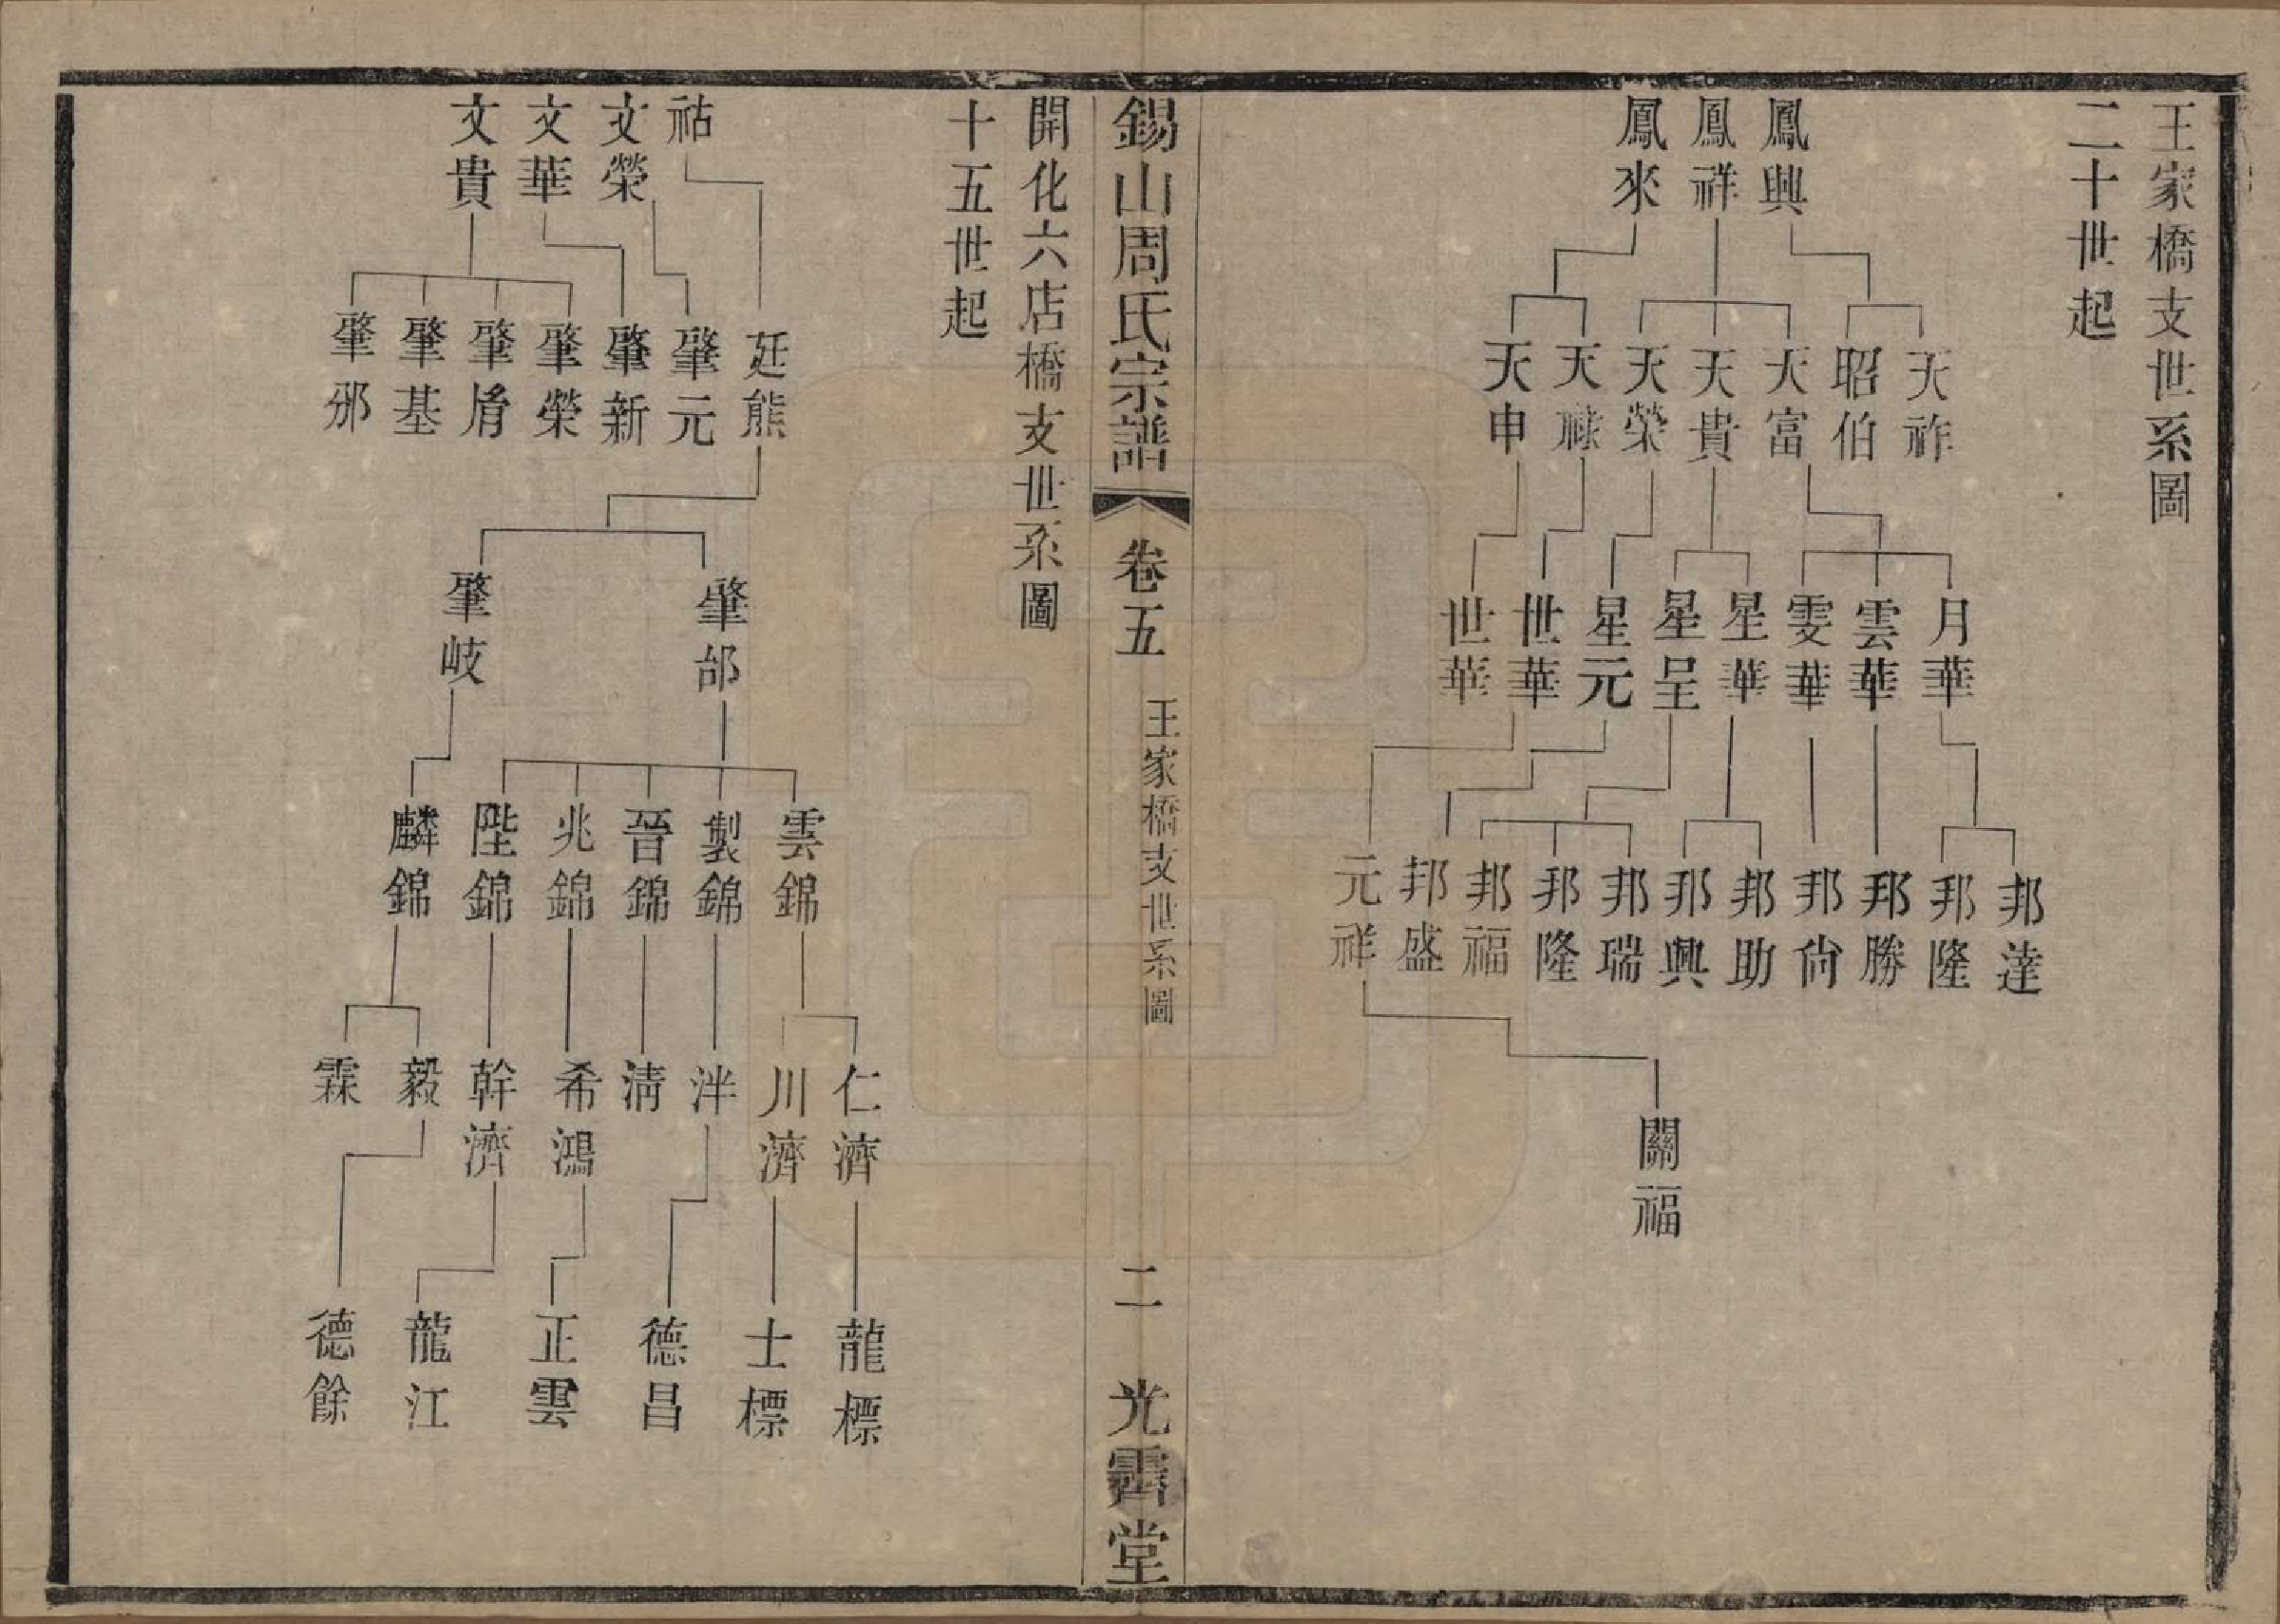 王家橋支世系圖
二十世起
鳳興
鳳祥
鳳來
天祚
昭伯
天富
天貴
天榮
天祿
天申
月華
雲華
雯華
星華
星呈
星元
世華
世華
邦達
邦隆
邦勝
邦尙
邦助
邦興
邦瑞
邦隆
邦福
邦盛
元祥
關福
錫山周氏宗譜
卷五
王家橋支世系圖
二
光霽堂
開化六店橋支世系圖
十五世起
祜
文榮
文華
文貴
廷熊
肇元
肇新
肇榮
肇
肇基
肇邠
肇邰
肇岐
雲錦
製錦
晉錦
兆錦
陛錦
麟錦
仁濟
川濟
泮
淸
希鴻
幹濟
毅
霖
龍標
士標
德昌
正雲
龍江
德餘